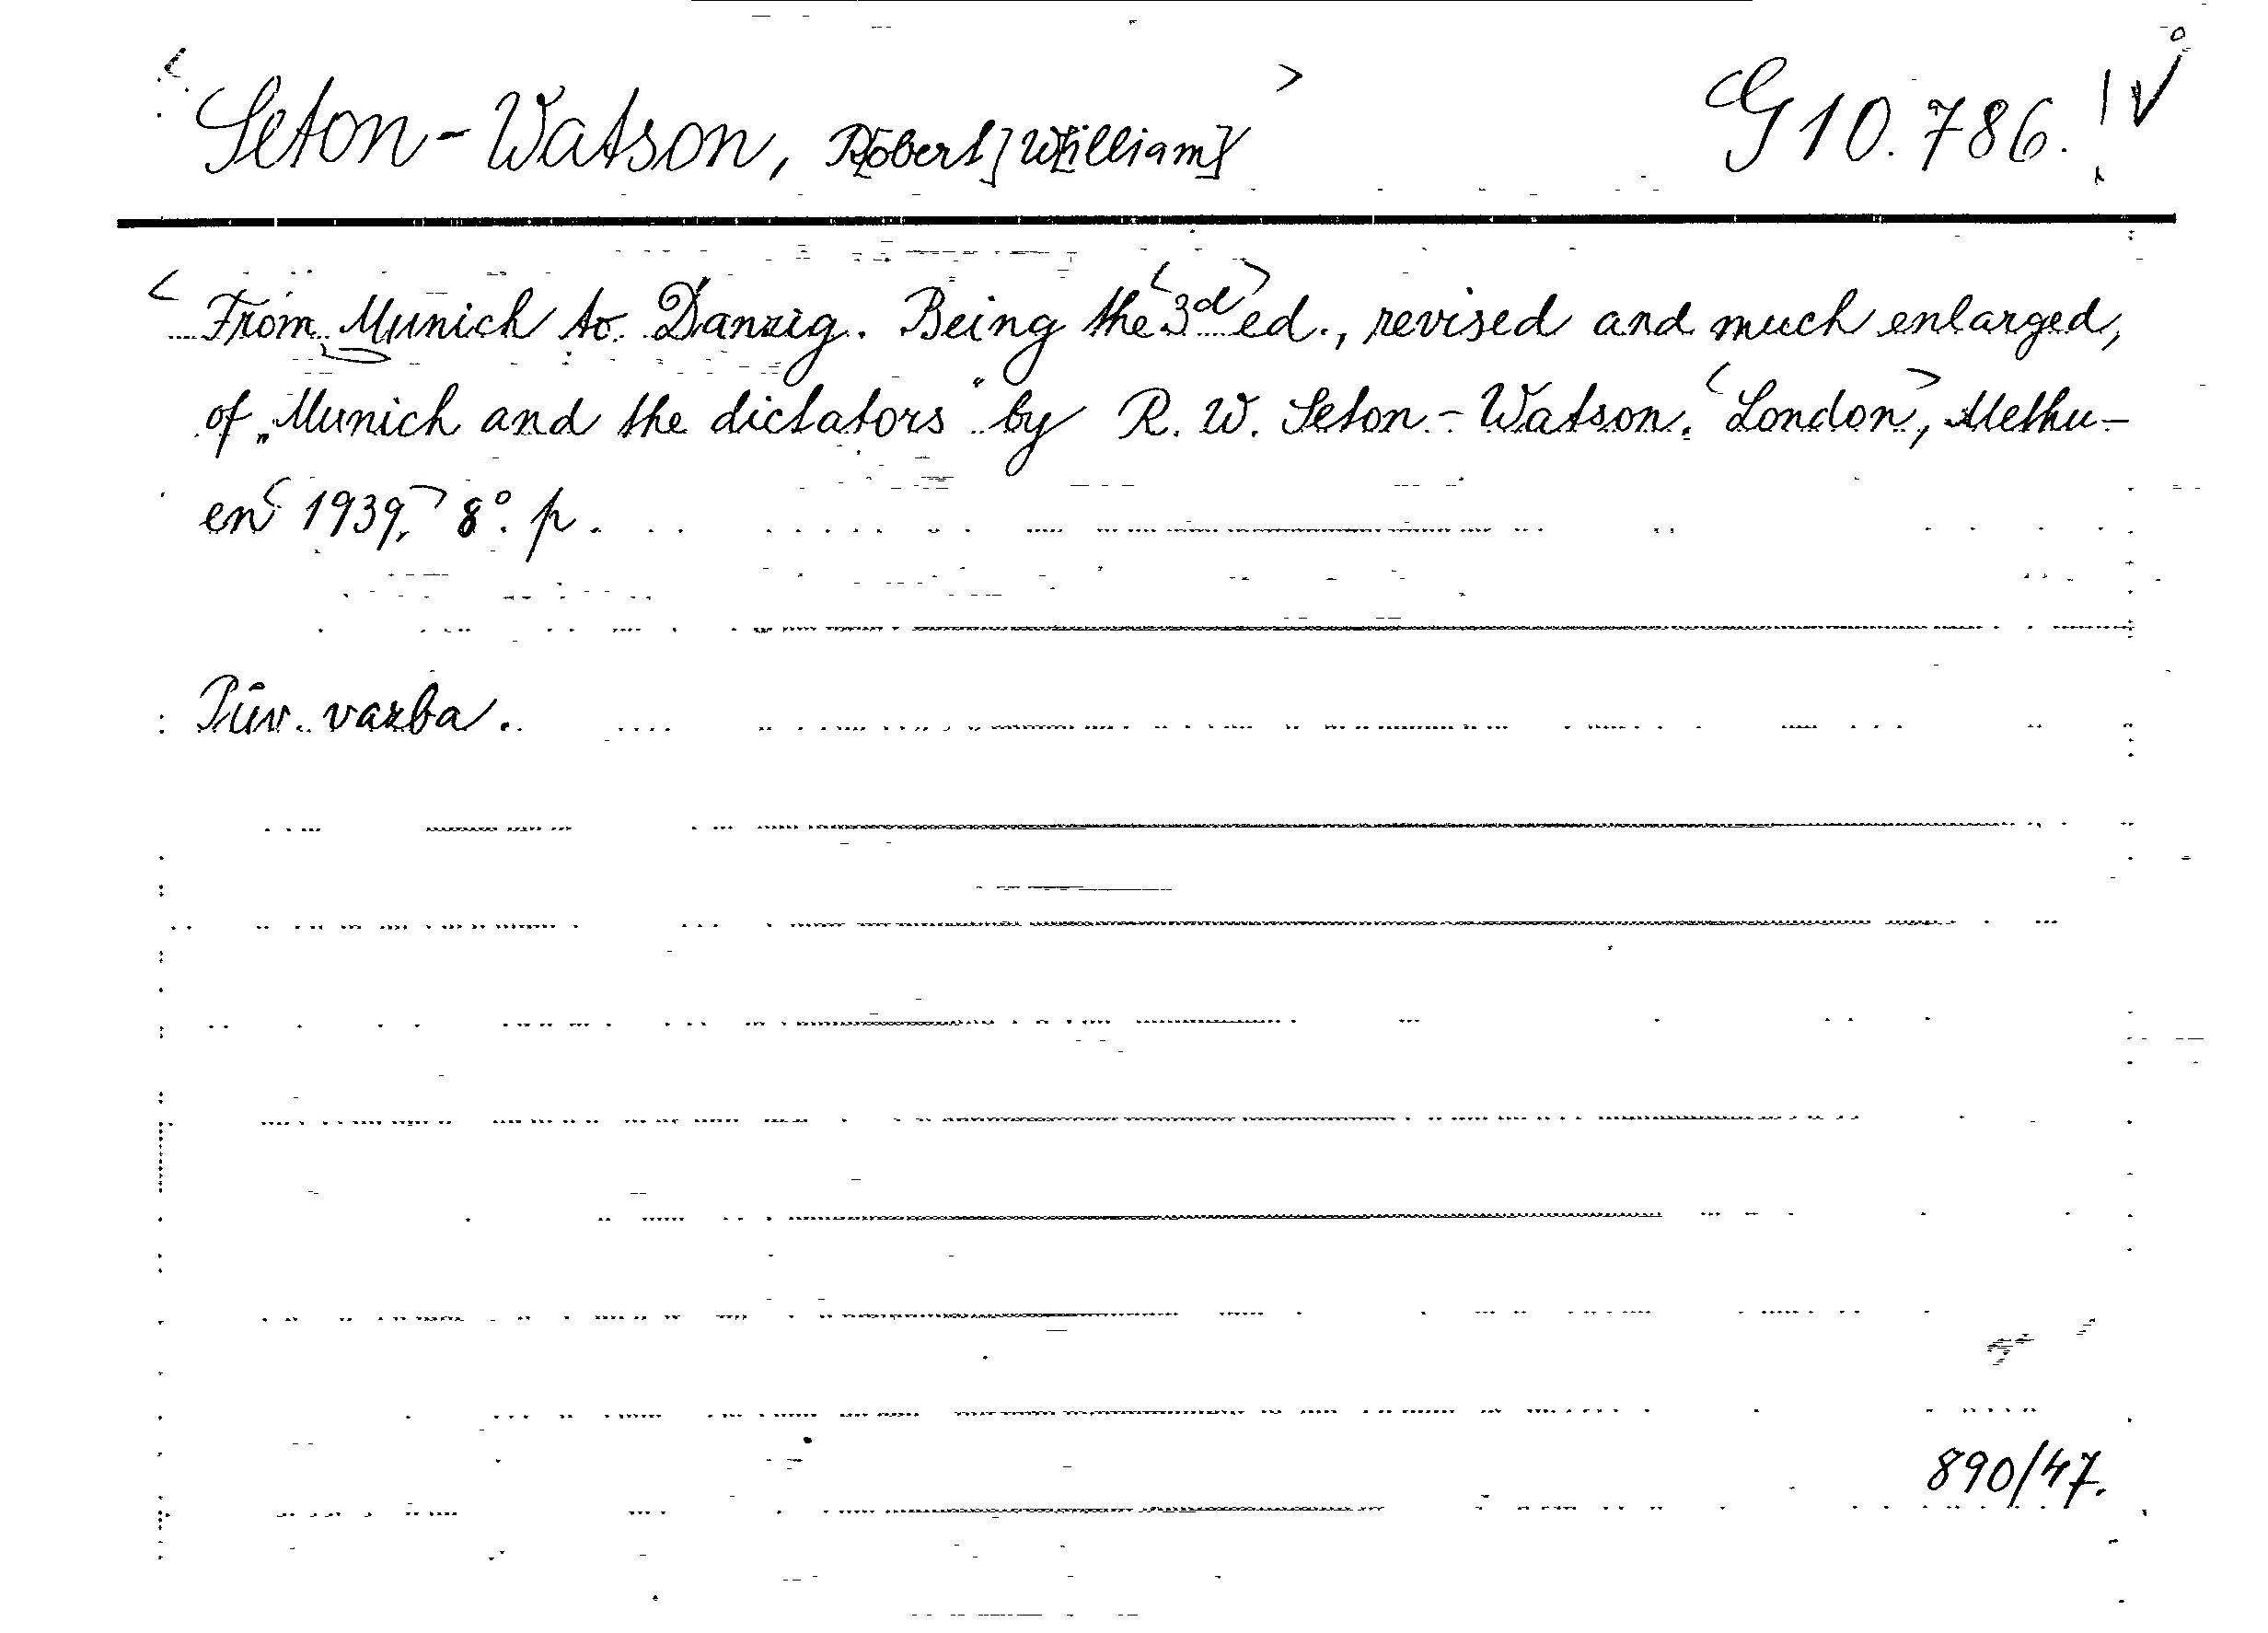 <Seton-Watson, R[obert] W[illiam]> G 10.786.!
<From Munich to Danzig. Being the <3d> ed., revised and much enlarged,
of „Munich and the dictators" by R. W. Seton-Watson. <London>, Methu-
en <1939.> 8°. p.
Pův. vazba.
890/47.